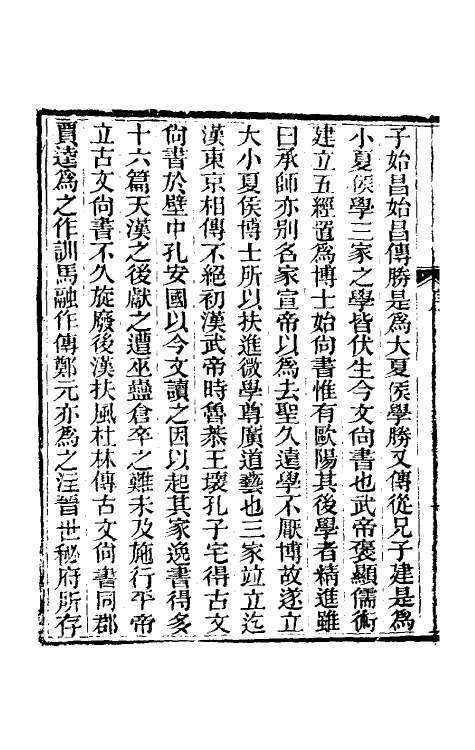 子始昌始昌傳勝是爲大夏侯學勝又傳從兄子建是爲
小夏侯學三家之學皆伏生今文尙書也武帝褒顯儒術
建立五經置爲博士始尙書惟有歐陽其後學者精進雖
曰承師亦別名家宣帝以爲去聖久遠學不厭博故遂立
大小夏侯博士所以扶進微學尊廣道藝也三家竝立迄
漢東京相傳不絕初漢武帝時魯恭王壞孔子宅得古文
尙書於壁中孔安國以今文讀之因以起其家逸書得多
十六篇天漢之後獻之遭巫蠱倉卒之難未及施行平帝
立古文尙書不久旋廢後漢扶風杜林傳古文尙書同郡
賈逵爲之作訓馬融作傳鄭元亦爲之注晉世秘府所存